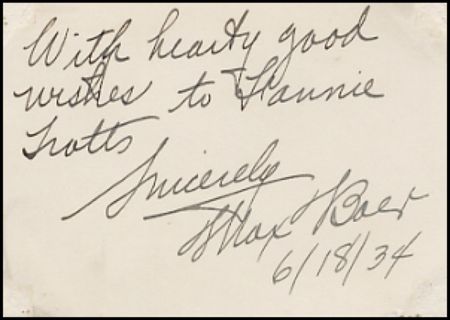 With hearty good
wishes to Fannie
Trotts
Sincerely
Max Baer
6/18/34